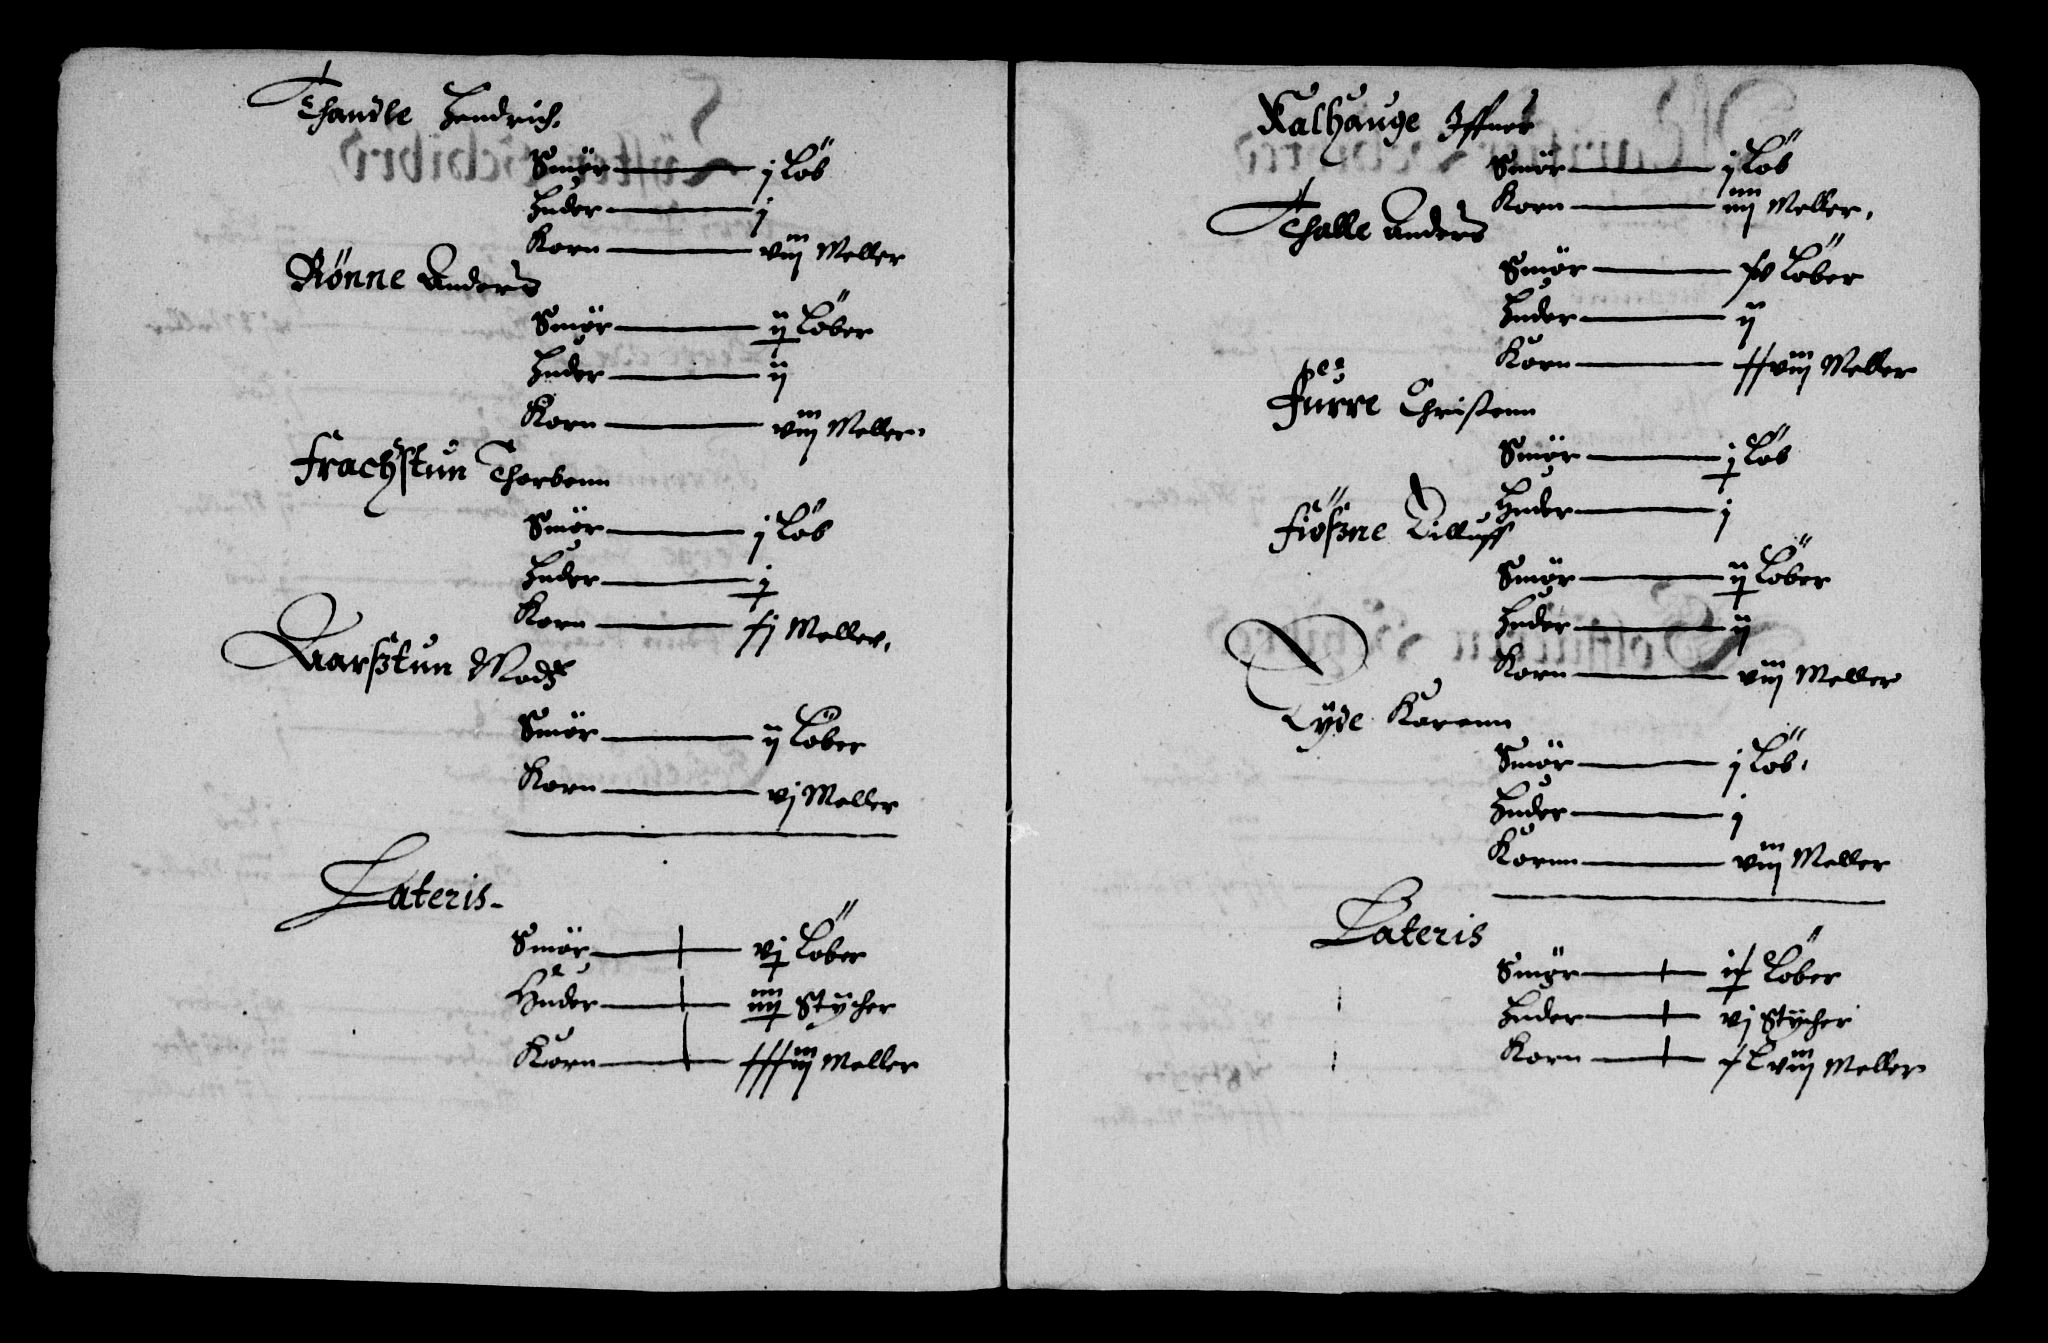 Thandle Hendrich.
Smör — j Löb
Huder — j
Korn — viij Meller
Rönne Anders
Smör — ij Löber
Huder — ij
Korn — viij Meller.
Frachstun Thorbenn
Smör — j Löb
Huder — j
Korn — xj Meller.
Aarßtun Madz
Smör — ij Löber
Korn — vj Meller
Lateris.
Smör — vj Löber
Huder — iiij Stÿcher
Korn — xxxiij Meller
Kalhauge Iffuer
Smör — j Löb
Korn — iiij Meller.
Thalle Anders
Smör — v Löber
Huder — ij
Korn — xxviij Meller
per
Furre Christenn
Smör — j Löb
Huder — j
Fiößne
Smör — ij Löber
Huder — ij
Korn — viij Meller
Karenn
Smör — j Löb.
Huder — j
Kornn — viij Meller
Lateris
Smör — ix Löber
Huder — vj Stÿcher
Korn — xLviij Meller